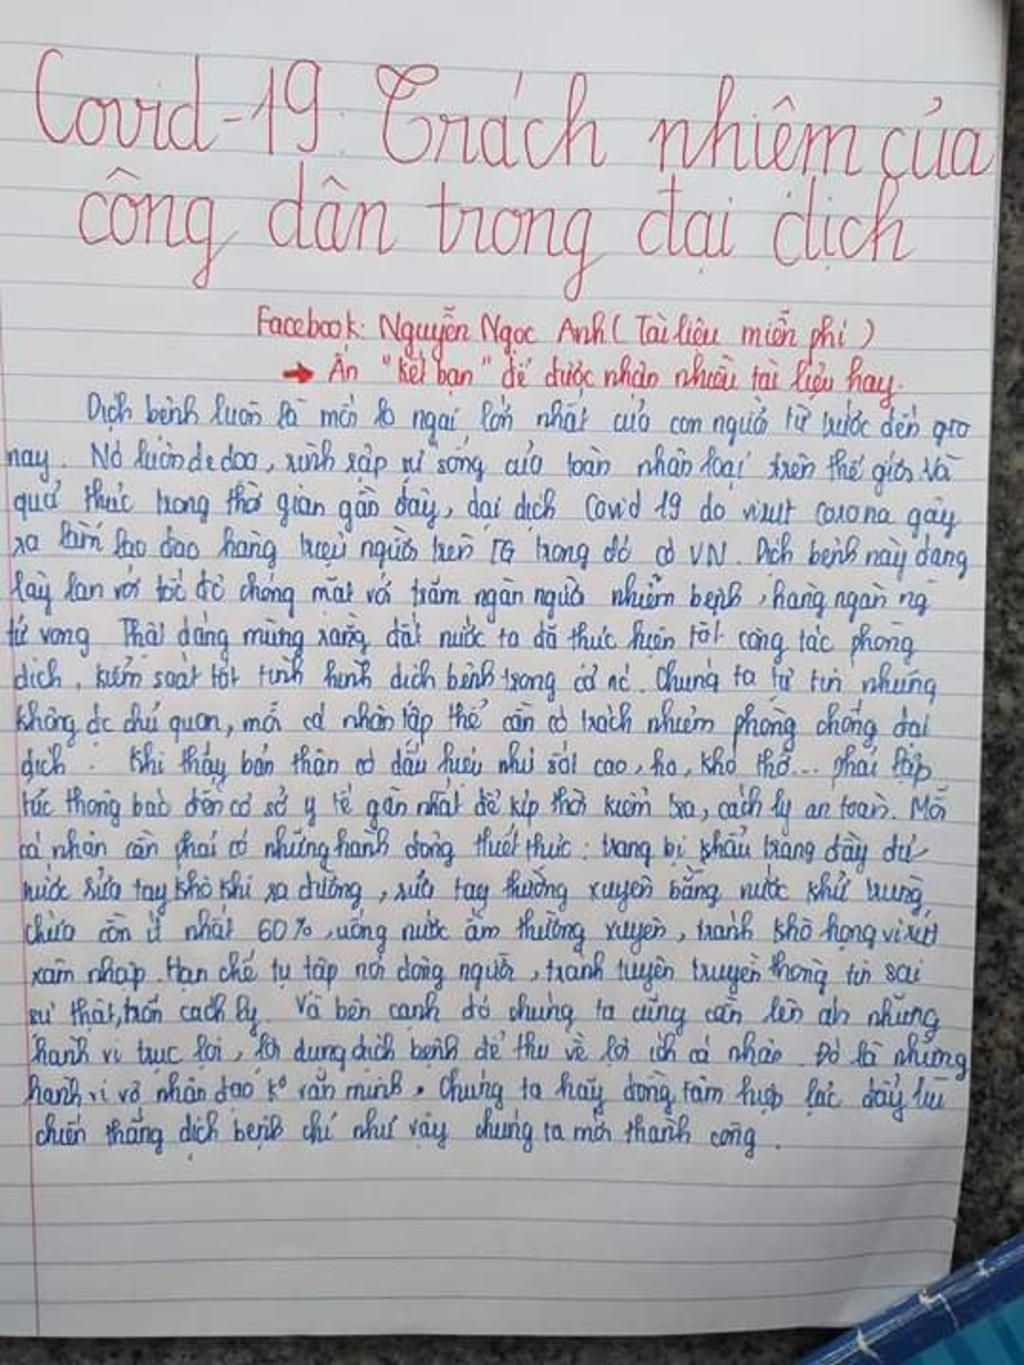 Covid-19: Trách nhiêm của
công dân trong đại dịch
Facebook: Nguyễn Ngọc Anh (Tài liệu miễn phí)
→ Ấn "kết bạn" để được nhận nhiều tài liệu hay.
Dịch bệnh luôn là mối lo ngại lớn nhất của con người từ trước đến giờ
nay. Nó luôn đe doạ, rình rập sự sống của toàn nhân loại trên thế giới. Và
quả thực trong thời gian gần đây, đại dịch Covid 19 do virut corona gây
ra làm lao đao hàng triệu người trên TG trong đó có VN. Dịch bệnh này đang
lây lan với tốc độ chóng mặt với trăm ngàn người nhiễm bệnh, hàng ngàn ng
tử vong Thật đáng mừng rằng đất nước ta đã thực hiện tốt công tác phòng
dịch, kiểm soát tốt tình hình dịch bệnh trong cả nc. Chúng ta tự tin nhưng
không đc chủ quan, mỗi cá nhân tập thể cần có trách nhiệm phòng chống đại
dịch. Khi thấy bản thân có dấu hiệu như sốt cao, ho, khó thở... phải lập
tức thông báo đến cơ sở y tế gần nhất để kịp thời kiểm tra, cách ly an toàn. Mỗi
cá nhân cần phải có những hành động thiết thực: trang bị khẩu trang đầy đủ
nước rửa tay khô khi ra đường, rửa tay thường xuyên bằng nước khử trùng
chứa cồn ít nhất 60%, uống nước ấm thường xuyên, tránh khô họng virut
xâm nhập. Hạn chế tụ tập nơi đông người, tránh tuyên truyền thông tin sai
sự thật, trốn cách ly. Và bên cạnh đó chúng ta cũng cần lên án những
hành vi trục lợi, lợi dụng dịch bệnh để thu về lợi ích cá nhân. Đó là những
hành vi vô nhân đạo kº văn minh. Chúng ta hãy đồng tâm hợp lực đẩy lùi
chiến thắng dịch bệnh chỉ như vậy chúng ta mới thành công.